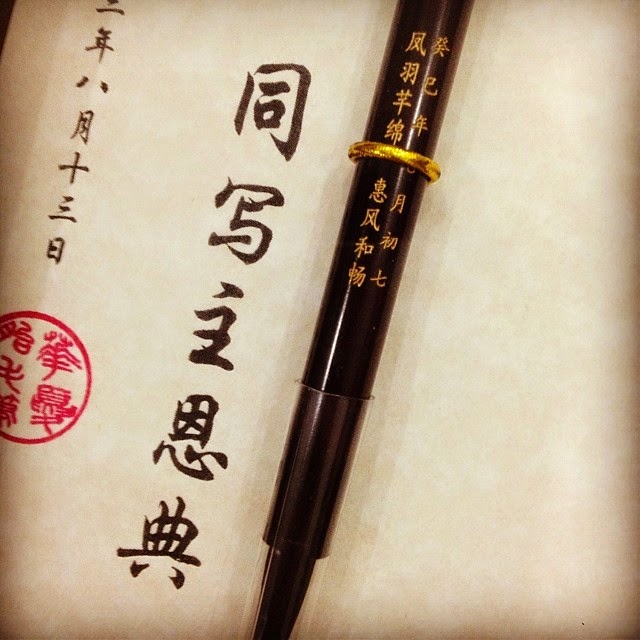 癸巳年 月初七
凤羽芊绵 惠风和畅
同写主恩典
年八月十三日